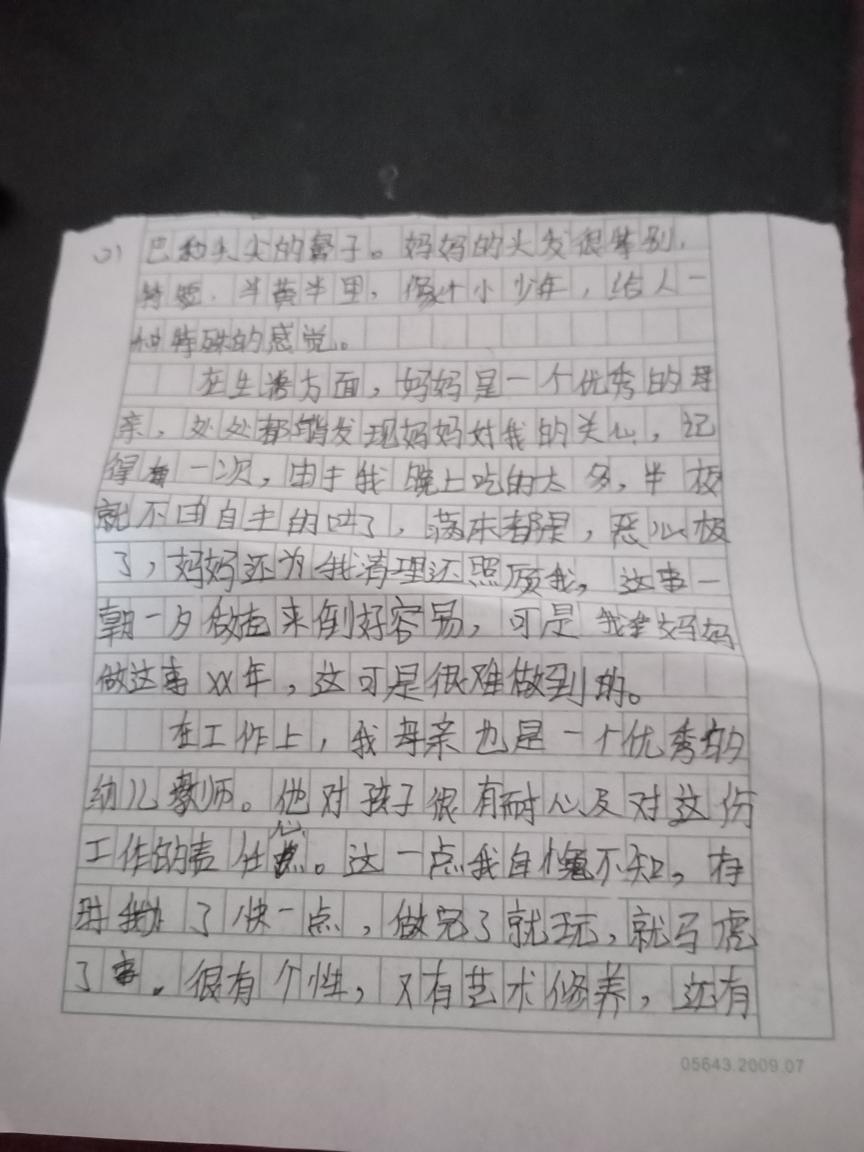 巴和尖尖的鼻子。妈妈的头发很特别,
特短.半黄半黑,像个小少年,给人一
种特殊的感觉。
在生活方面,妈妈是一个优秀的母
亲,处处都能发现妈妈对我的关心,记
得有一次,由于我晚上吃的太多,半夜
就不由自主的吐了,满床都是,恶心极
了,妈妈还为我清理还照顾我,这事一
朝一夕做起来倒好容易,可是我妈妈
做这事xx年,这可是很难做到的。
在工作上,我母亲也是一个优秀的
幼儿教师。他对孩子很有耐心及对这份
工作的责任心。这一点我自愧不如,有
时我为了快一点,做完了就玩,就马虎
了事。很有个性,又有艺术修养,还有
05643.2009.07